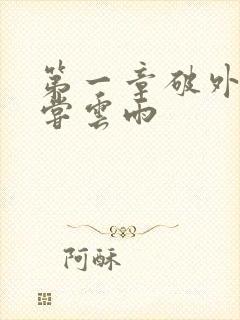 第一章破处
尝雲雨
阿酥